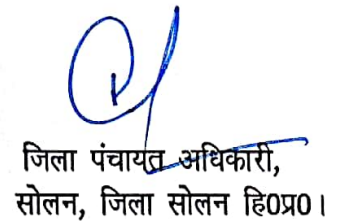 जिला पंचायत अधिकारी,
सोलन, जिला सोलन हि0प्र0।